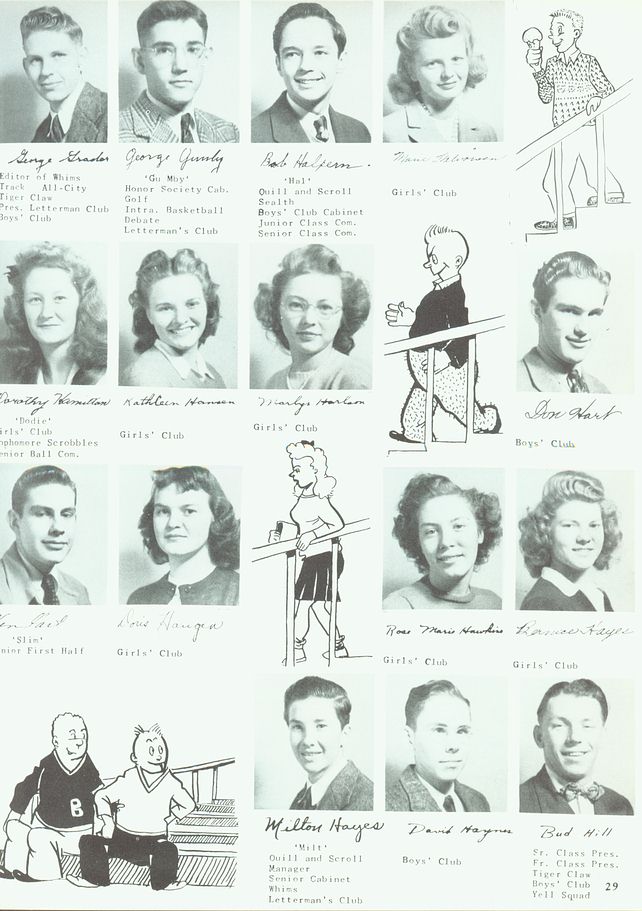 George Grader
Editor of Whims
Track All-City
Tiger Claw
Pres. Letterman Club
Boys' Club
George Gumby
'Gu Mby'
Honor Society Cab.
Golf
Intra. Basketball
Debate
Letterman's Club
Bob Halpern.
'Hal'
Quill and Scroll
Sealth
Boys' Club Cabinet
Junior Class Com.
Senior Class Com.
Marie Halvorsen
Girls' Club
Dorothy Hamilton
'Dodie'
irls' Club
ophomore Scrobbles
enior Ball Com.
Kathleen Hansen
Girls' Club
Marlys Harlson
Girls' Club
Don Hart
Boys' Club
'Slim'
nior First Half
Doris Haugen
Girls' Club
Rose Marie Hawkins
Girls' Club
Bernice Hayes
Girls' Club
B
Milton Hayes
'Milt'
Quill and Scroll
Manager
Senior Cabinet
Whims
Letterman's Club
David Haynes
Boys' Club
Bud Hill
Sr. Class Pres.
Fr. Class Pres.
Tiger Claw
Boys' Club
Yell Squad
29